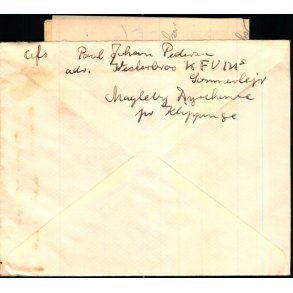 Afs Paul Johan Pedersen
adr. Vesterbros KFUMs
Sommerlejr
Magleby
pr Klippinge